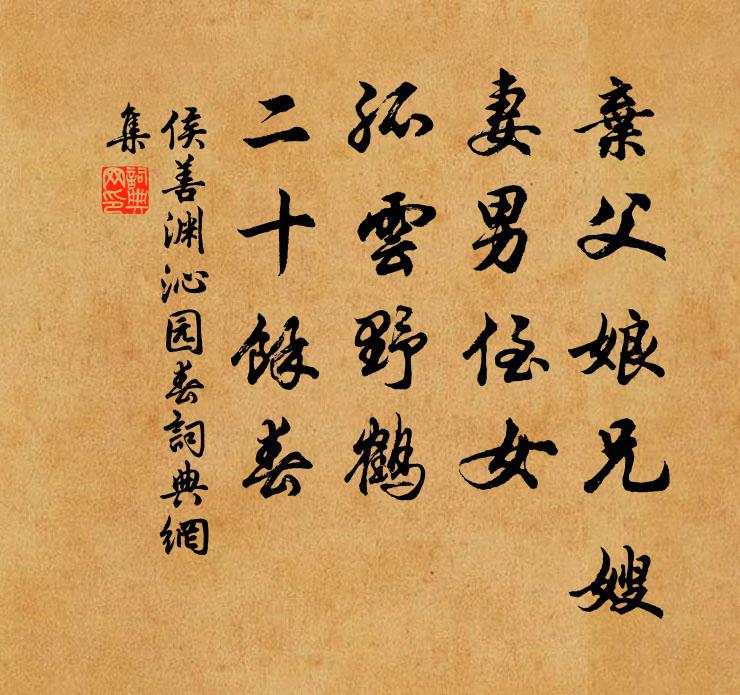 棄父娘兄嫂
妻男侄女
孤雲野鶴
二十餘春
侯善渊沁园春詞典網
集
詞典網印